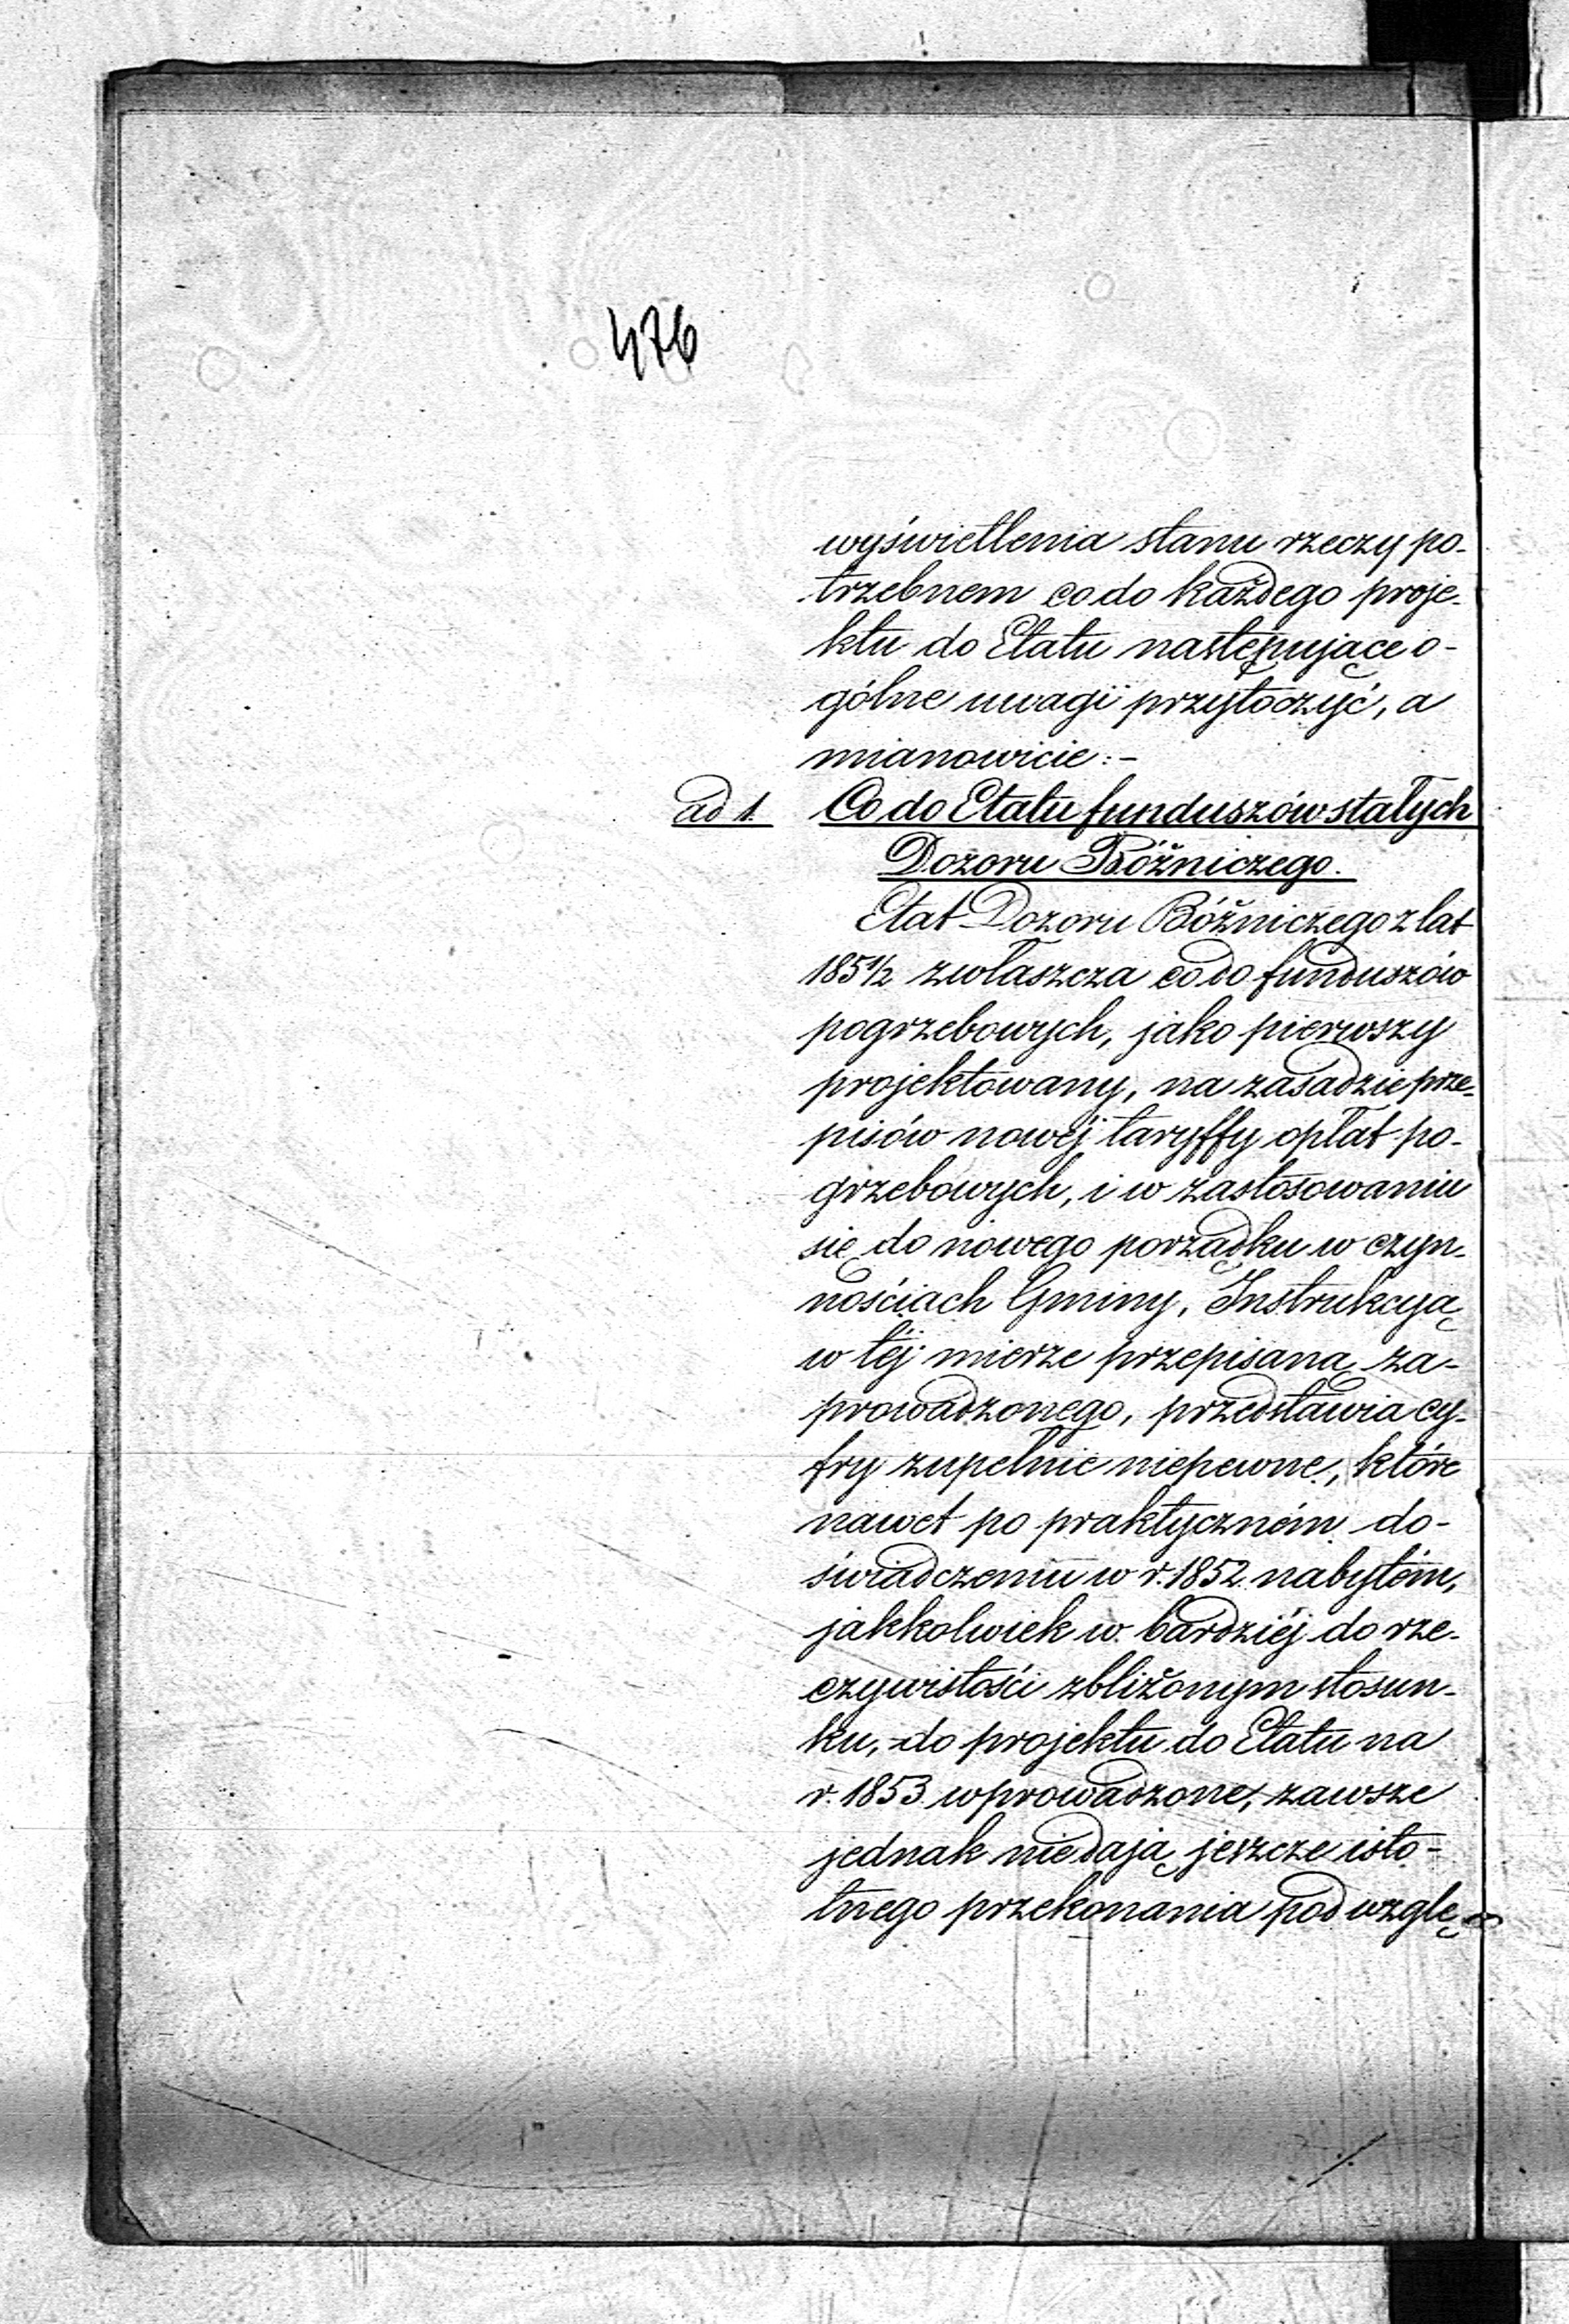 476
wyświetlenia stanu rzeczy po-
trzebnem co do każdego proje-
ktu do Etatu następujące o-
gólne uwagi przytoczyć, a
mianowicie:-
ad 1. Co do Etatu funduszów stałych
Dozoru Bóżniczego.
Etat Dozoru Bóżniczego z lat
1851/2 zwłaszcza co do funduszów
pogrzebowych, jako pierwszy
projektowany, na zasadzie prze-
pisów nowéj taryffy opłat po-
grzebowych, i w zastosowaniu
się do nowego porządku w czyn-
nościach Gminy, Instrukcyą
w téj mierze przepisaną za-
prowadzonego, przedstawia cy-
fry zupełnie niepewne, które
nawet po praktyczném do-
świadczeniu w r. 1852 nabytém,
jakkolwiek w bardziéj do rze-
czywistości zbliżonym stosun-
ku, do projektu do Etatu na
r. 1853 wprowadzone, zawsze
jednak niedają jeszcze isto-
tnego przekonania pod wzglę-